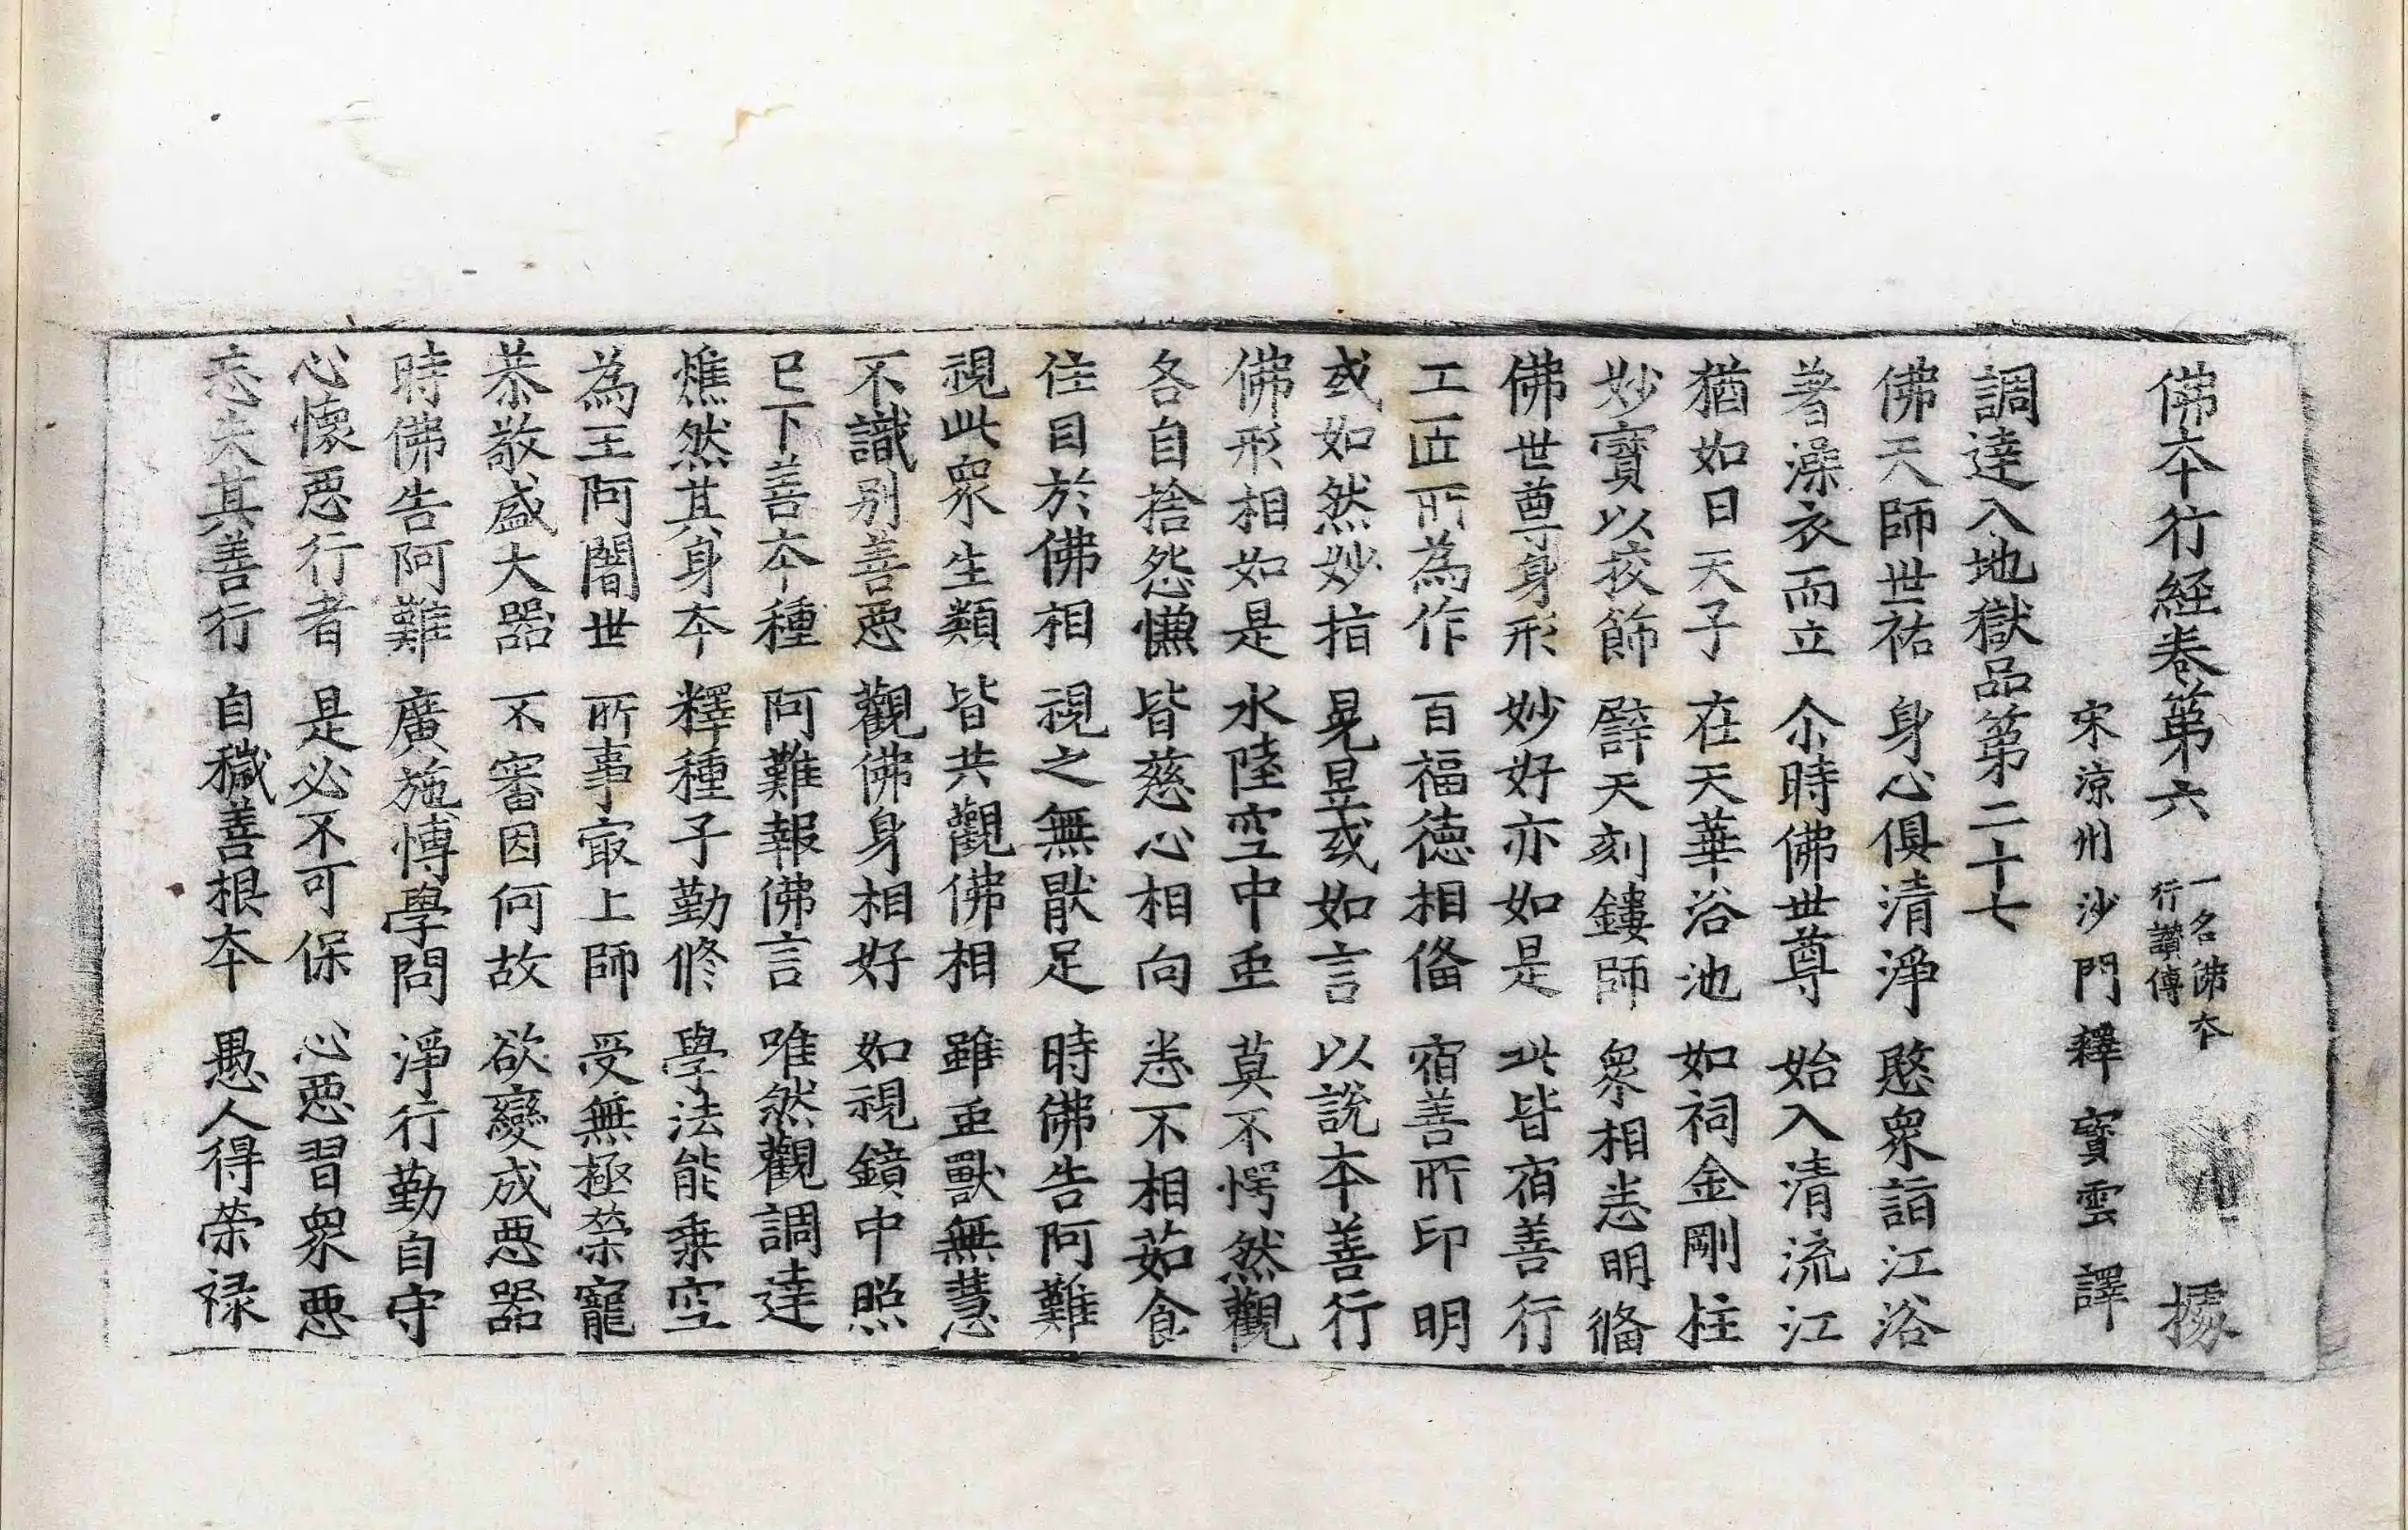 佛本行經卷第六 一名佛本行讚傳 據
宋涼州沙門釋寶雲譯
調達入地獄品第二十七
佛天師世祐 身心俱清淨 愍衆詣江浴
著澡衣而立 尒時佛世尊 始入清流江
猶如日天子 在天華浴池 如祠金剛柱
妙寶以挍飾 譬天刻鏤師 衆相悉明俻
佛世尊身形 妙好亦如是 此皆宿善行
工匠所為作 百福德相俻 宿善所印明
或如然妙指 晃昱或如言 以說本善行
佛形相如是 水陸空中䖝 莫不愕然觀
各自捨怨慊 皆慈心相向 悉不相茹食
住目於佛相 視之無猒足 時佛告阿難
視此衆生類 皆共觀佛相 雖䖝獸無慧
不識别善惡 觀佛身相好 如視鏡中照
已下善本種 阿難報佛言 唯然觀調達
燋然其身本 釋種子勤修 學法能乗空
為王阿闍世 所事㝡上師 受無極榮寵
恭敬盛大器 不審因何故 欲變成惡器
時佛告阿難 廣施博學問 淨行勤自守
心懷惡行者 是必不可保 心惡習衆惡
忘失其善行 自穢善根本 愚人得榮禄